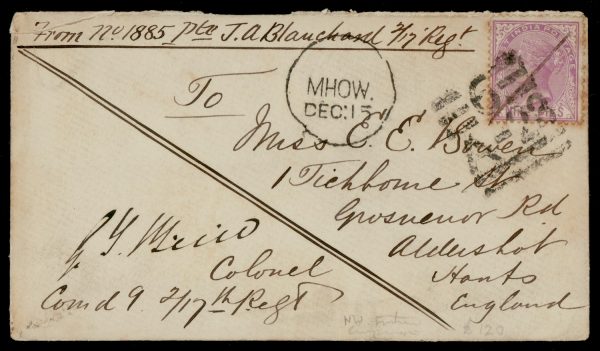 From No 1885 Pte J. A Blanchard 2/17 Regt
INDIA POSTAGE
MHOW.
DEC: 15
To
Miss E. E. Bowen
1 Tichborne St
Grosvenor Rd
Aldershot
Hants
England
Colonel
Comdg 2/17th Regt
£120